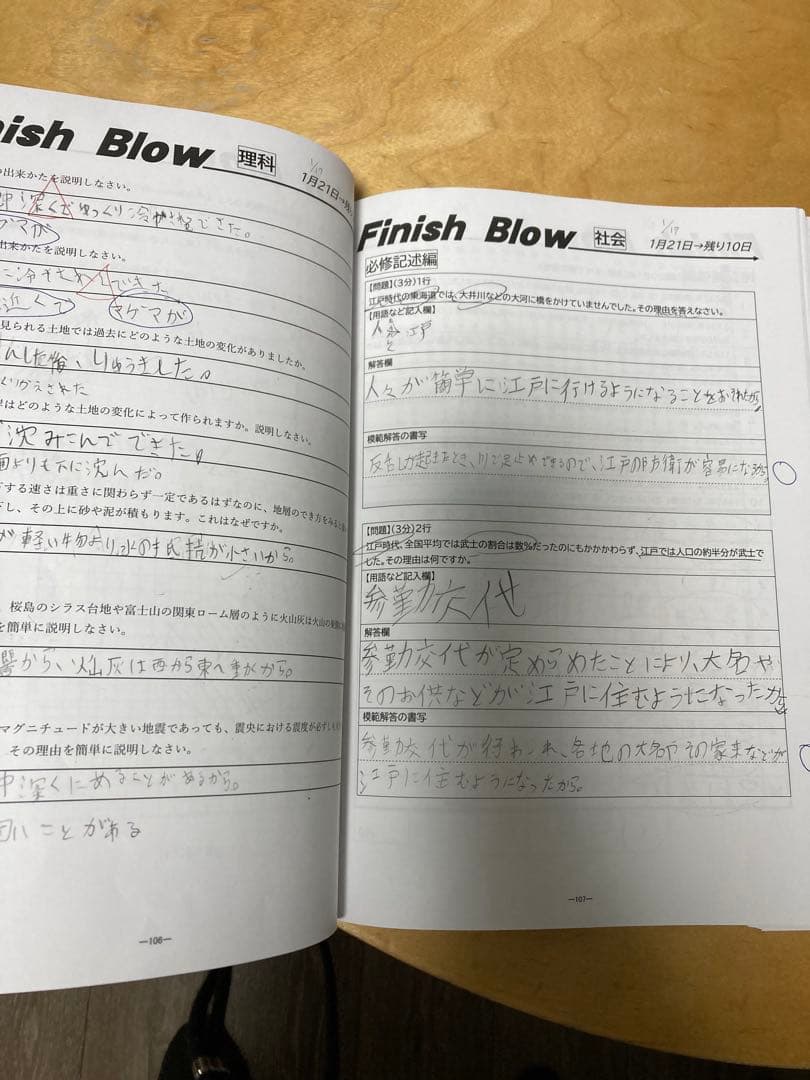 nish Blow 理科
1/17
1月21日→残り
出来かたを説明しなさい。
深くでゆっくり冷
できた。
マグマが
出来かたを説明しなさい。
に冷
できた
近くで
マグマが
見られる土地では過去にどのような土地の変化がありましたか。
した後、りゅうきした。
くりかえされた
はどのような土地の変化によって作られますか。説明しなさい。
沈みこんでできた。
面よりも下に沈んだ。
下する速さは重さに関わらず一定であるはずなのに、地層のでき方をみると
下し、その上に砂や泥が積もります。これはなぜですか。
が軽い物より水の抵抗が小さいから。
桜島のシラス台地や富士山の関東ローム層のように火山灰は火山の
を簡単に説明しなさい。
から、火山灰は西から東へ動くから。
マグニチュードが大きい地震であっても、震央における震度が必ずしも
その理由を簡単に説明しなさい。
深くにあることがあるから。
いことがある
―106―
Finish Blow 社会
1/17
1月21日→残り10日
必修記述編
【問題】(3分)1行
江戸時代の東海道では、大井川などの大河に橋をかけていませんでした。その理由を答えなさい。
【用語など記入欄】
人々 江戸
解答欄
人々が簡単に江戸に行けるようになることをおそれたから。
模範解答の書写
反乱が起きたとき、川で足止めできるので、江戸の防衛が容易になるから。
【問題】(3分)2行
江戸時代、全国平均では武士の割合は数%だったのにもかかかわらず、江戸では人口の約半分が武士で
した。その理由は何ですか。
【用語など記入欄】
参勤交代
解答欄
参勤交代が定められたことにより、大名や
そのお供などが江戸に住むようになったから。
模範解答の書写
参勤交代が行われ、各地の大名やその家来などが
江戸に住むようになったから。
―107―